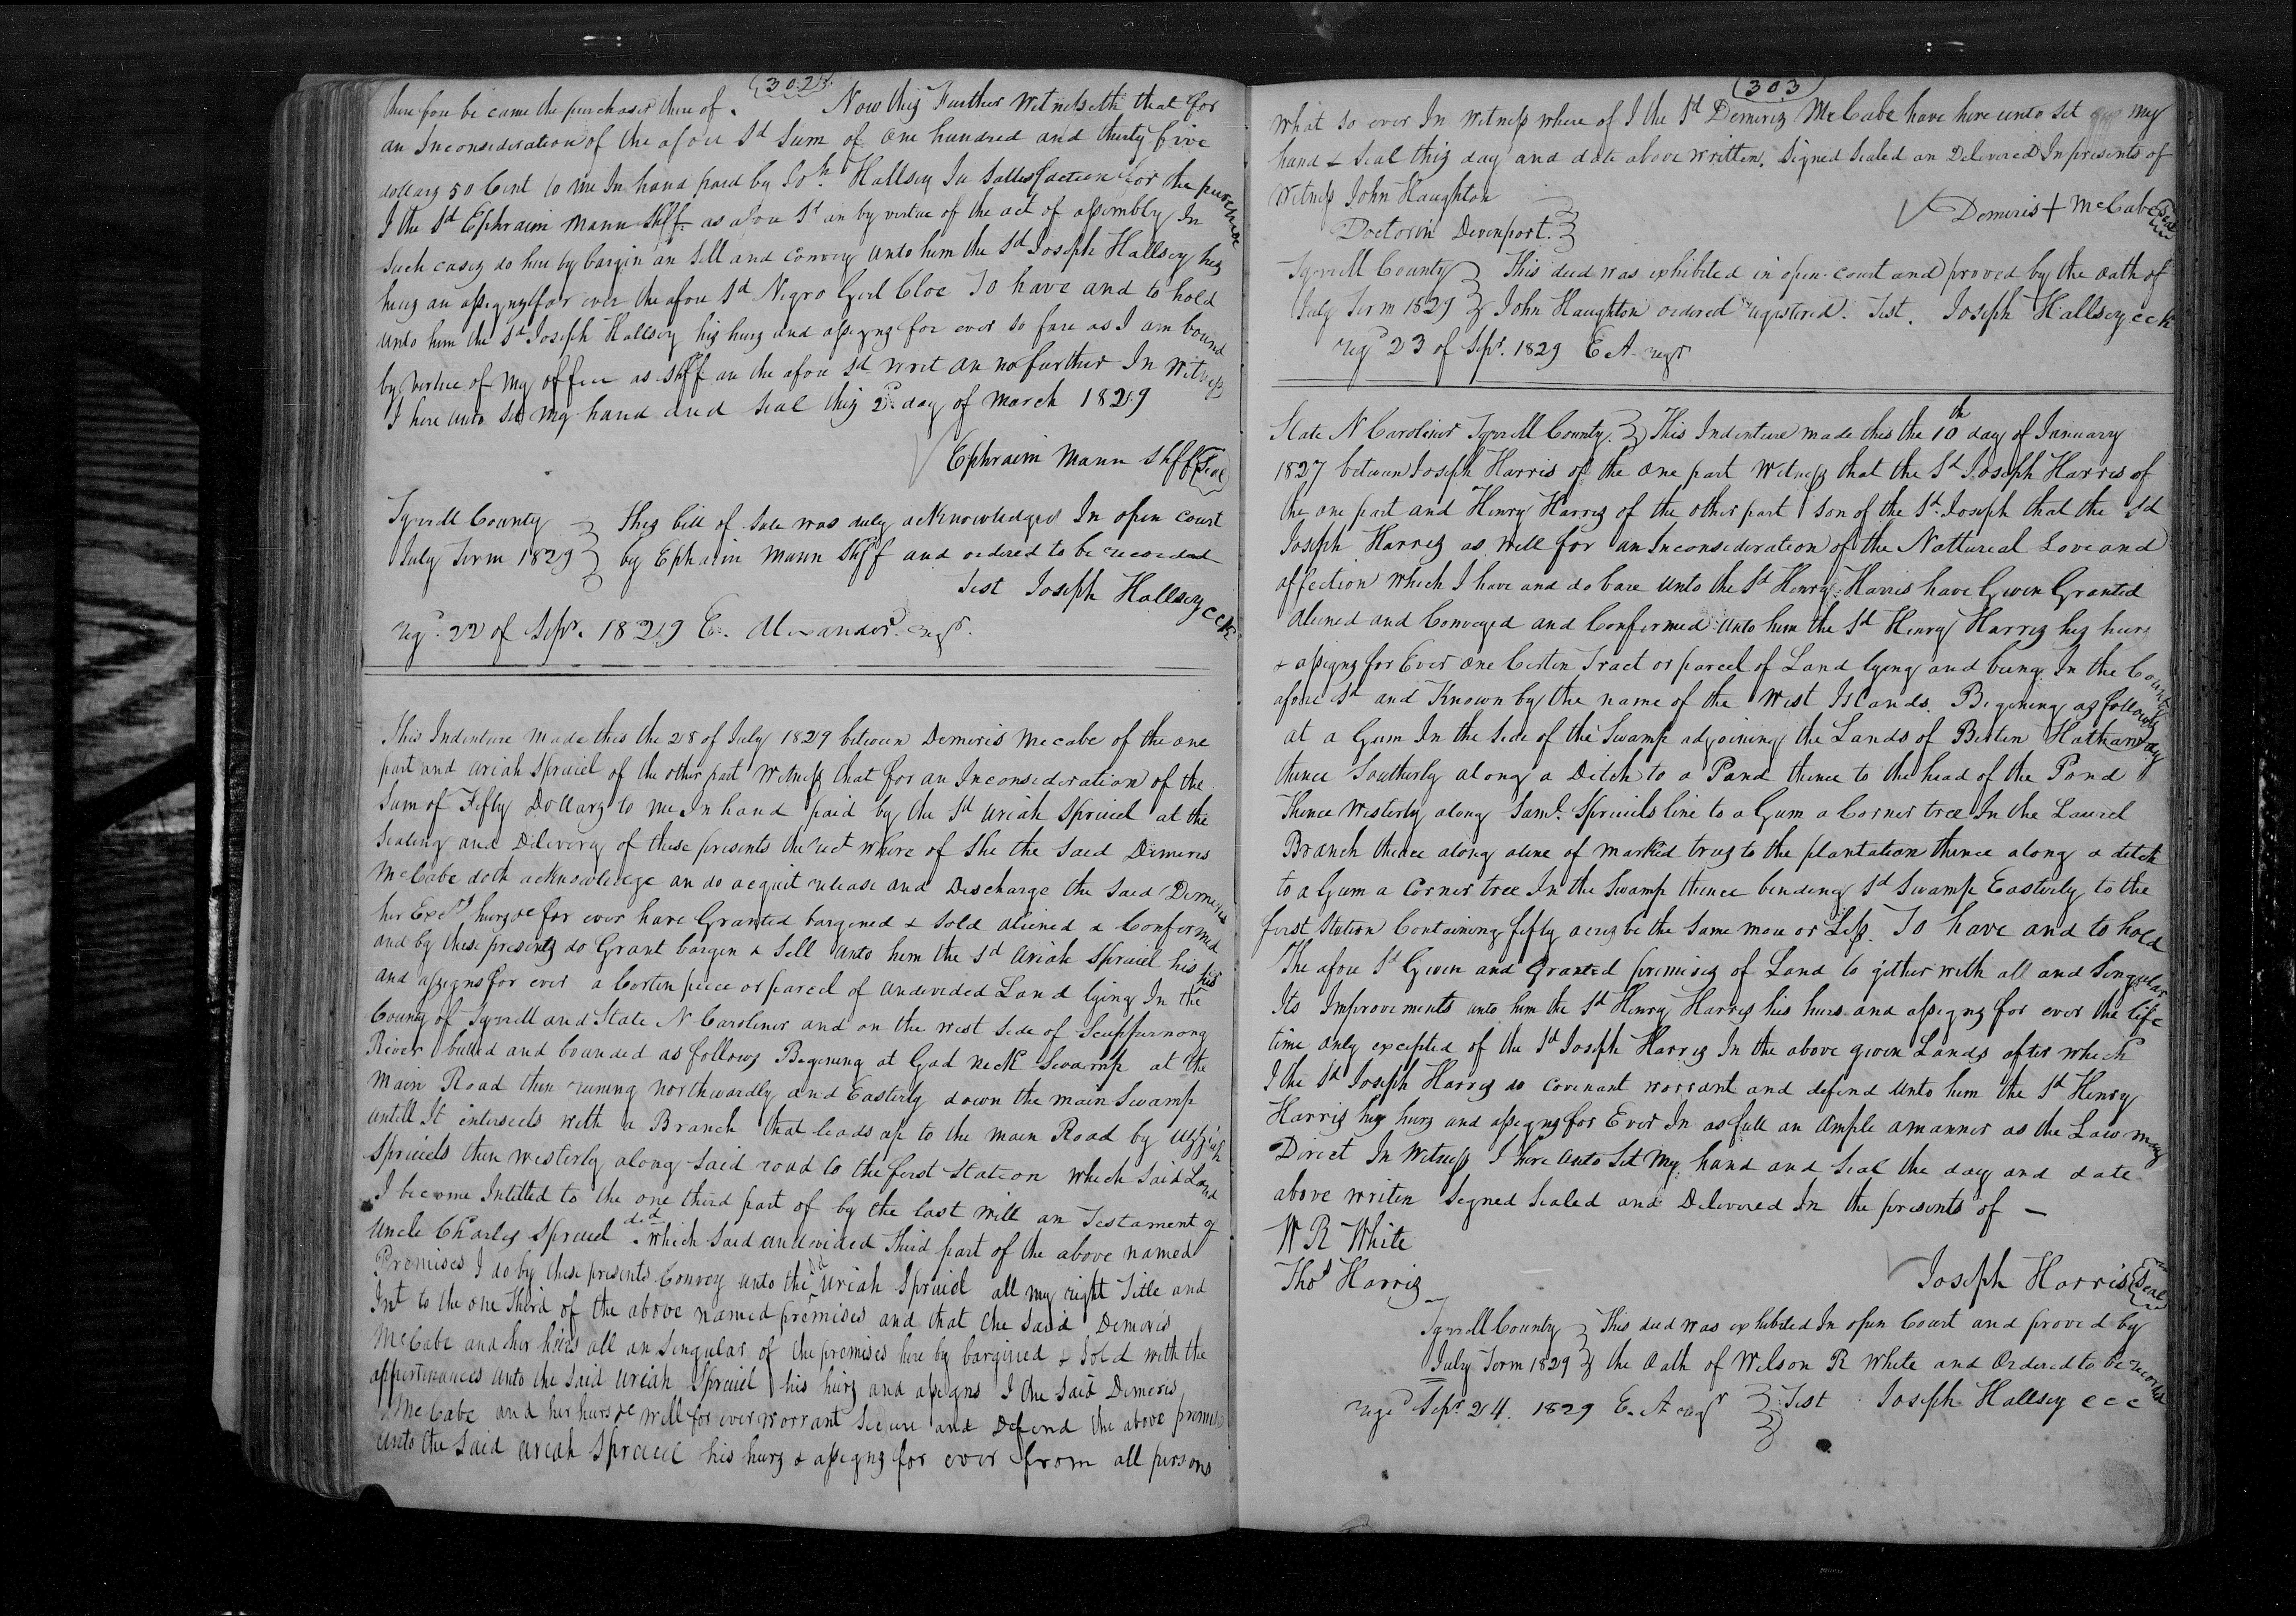 302
there fore be came the purchaser there of. Now this Further Witnesseth that for
an Inconsideration of the afore sd Sum of one hundred and thirty five
dollars 50 Cent to me In hand paid by Joh. Hallsey In Sattisfaction for the purchase
I the sd Ephraim Mann Shff. as afore sd an by virtue of the act of assembly In
Such cases do here by bargin an Sell and convey unto him the sd Joseph Hallsey his
heirs an assigns for ever the afore sd Negro Girl Cloe To have and to hold
unto him the sd Joseph Hallsey his heirs and assigns for ever so fare as I am bound
by virtue of my office as Shff an the afore sd writ an no further In Witness
I here unto Set my hand and Seal this 2d day of March 1829
Ephraim Mann Shff Seal
Tyrrell County This bill of Sale was duly acknowledged In open court
July Term 1829 by Ephraim Mann Shff and ordered to be recorded
Test Joseph Hallsey cck
regd. 22 of Sepr. 1829 E. Alexander regr.
This Indenture made this the 28 of July 1829 between Demeris Mccabe of the one
part and Uriah Spruiel of the other part Witness that for an Inconsideration of the
Sum of Fifty Dollars to me In hand paid by the sd Uriah Spruiel at the
Sealing and Dilivery of these presents the rect where of She the Said Demeris
McCabe doth acknowledge an do acquit release and Discharge the Said Demeris
her Exers heirs &c for ever have Granted bargened & sold aliened & Confirmed
and by these presents do Grant bargen & Sell unto him the sd Uriah Spruiel his heirs
and assigns for ever a Certen piece or parcel of undevided Land lying In the
County of Tyrrell and State N Caroliner and on the west Side of Scuppurnong
River butted and bounded as follows Begening at Gad neck Swamp at the
Main Road then runing northwardly and Easterly down the main Swamp
untill It intersects with a Branch that leads up to the main Road by Uzziah
Spruiels then westerly along said road to the first Station which said Land
I become Intitled to the one third part of by the last will an Testament of
Uncle Charles Spruiel decd. which said undivided third part of the above named
Premises I do by these presents Convey unto the sd Uriah Spruiel all my right Title and
Int to the one third of the above named premises and that the said Demeris
McCabe and her heirs all an Singular of the premises here by bargined & Sold with the
appurtinances unto the said Uriah Spruiel his heirs and assigns I the said Demeris
McCabe and her heirs &c will for ever worrant Secure and Defend the above premises
unto the Said Uriah Spruiel his heirs & assigns for ever from all persons
303
what so ever In Witness where of I the sd Demeris McCabe have here unto Set my
hand & Seal this day and date above written. Signed Sealed an Delevered In presents of
Witness John Haughton
Doctorin Devenport.
Demeris + McCabe Seal
Tyrrell County This deed was exhibited in open court and proved by the oath of
July Term 1829 John Haughton ordered registered. Test. Joseph Hallsey cck
regd 23 of Sepr. 1829 E A regr
State N Caroliner Tyrrell County. This Indenture made this the 10th day of January
1827 between Joseph Harris of the one part Witness that the sd Joseph Harris of
the one part and Henry Harris of the other part son of the sd Joseph that the sd
Joseph Harris as well for an Inconsideration of the Nattureal Love and
affection which I have and do bare unto the sd Henry Harris have Given Granted
aliened and Conveyed and Confermed unto him the sd Henry Harris his heirs
& assigns for Ever one Certen Tract or parcel of Land lying and being In the County
afore sd and Known by the name of the West Islands. Begining as follows
at a Gum In the Side of the Swamp adjoining the Lands of Berten Hathaway
thence Southerly along a Ditch to a Pond thence to the head of the Pond
Thence Westerly along Saml. Spruiels line to a Gum a Corner tree In the Laurel
Branch thence along a line of marked trees to the plantation thence along a ditch
to a Gum a Corner tree In the Swamp thence bending sd Swamp Easterly to the
first Station Containing fifty acres be the Same more or Less. To have and to hold
The afore sd Given and Granted premises of Land to gether with all and Singular
Its Improvements unto him the sd Henry Harris his heirs and assigns for ever the life
time only excepted of the sd Joseph Harris In the above given Lands after which
I the sd Joseph Harris do covenant worrant and defend unto him the sd Henry
Harris his heirs and assigns for Ever In as full an Ample a manner as the Law may
Direct In Witness I here unto Set My hand and Seal the day and date
above writen Segned Sealed and Delivered In the presents of —
W R White
Thos Harris
Joseph Harris Seal
Tyrrell County This deed was exhibited In open Court and proved by
July Term 1829 the Oath of Wilson R White and Ordered to be recorded
regd Sepr. 24. 1829 E. A regr Test Joseph Hallsey ccc